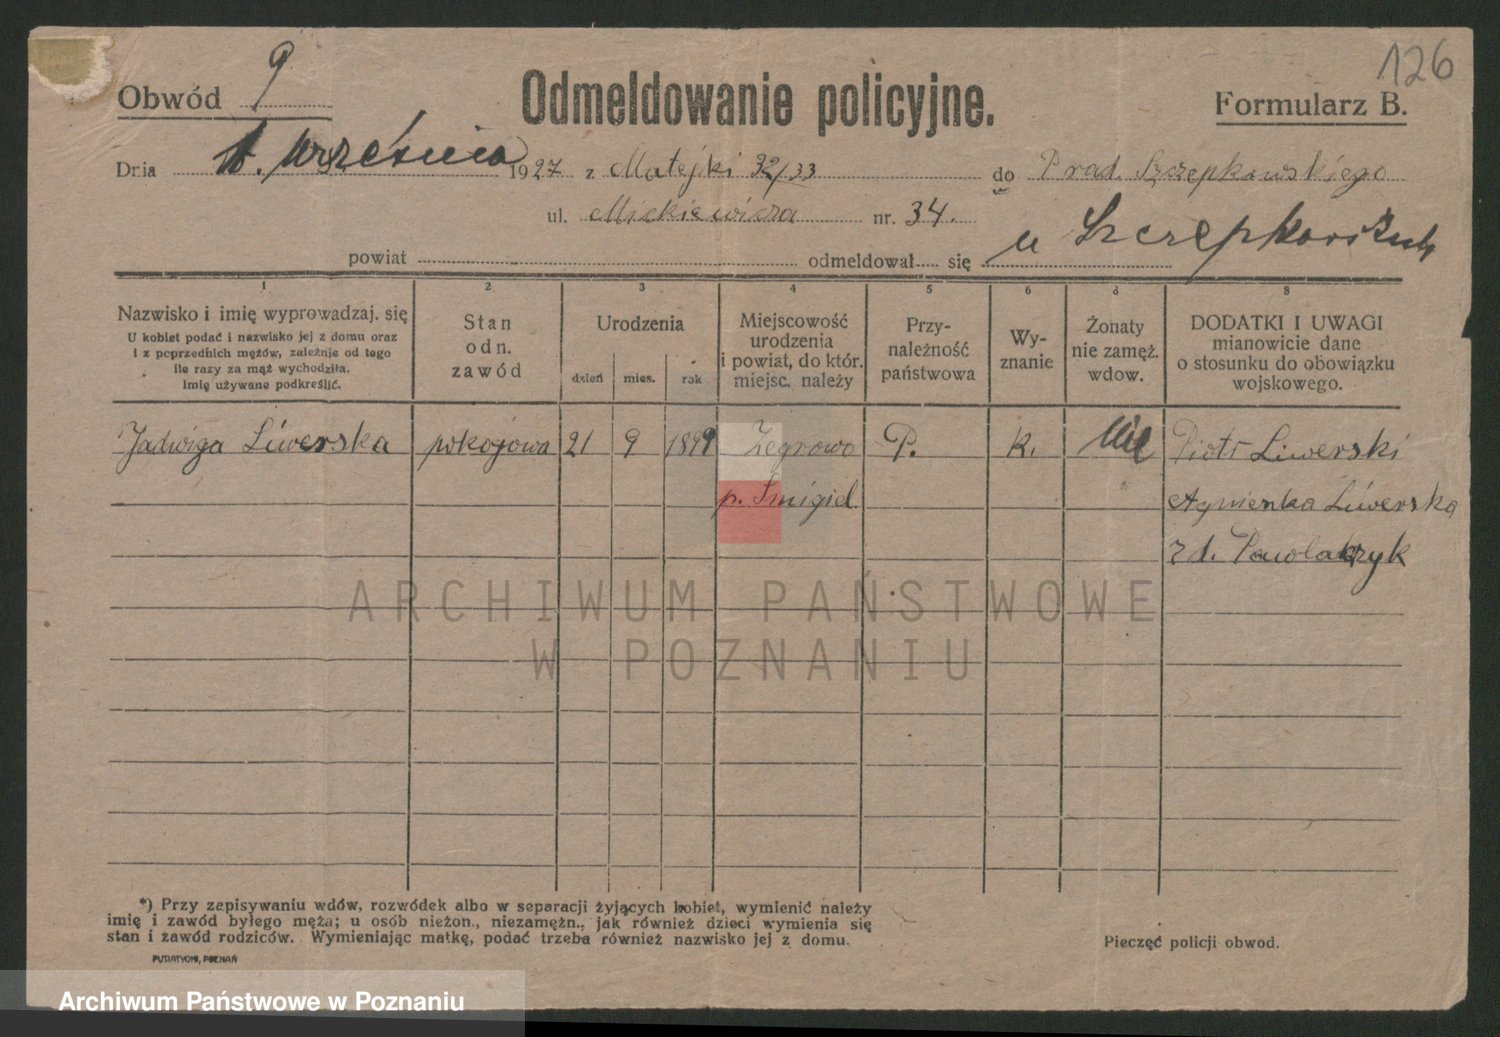 126
Obwód 9
Odmeldowanie policyjne.
Formularz B.
Dnia września 1927 z Matejki 32/33 do Prad. Szczepkowskiego
ul. Mickiewicza nr. 34.
powiat odmeldował się u
1 2 3 4 5 6 8
Nazwisko i imię wyprowadzaj. się
U kobiet podać i nazwisko jej z domu oraz
i z poprzednich mężów, zależnie od tego
ile razy za mąż wychodziła.
Imię używane podkreślić.
Stan
odn.
zawód
Urodzenia
dzień mies. rok
Miejscowość
urodzenia
i powiat, do któr.
miejsc. należy
Przy-
należność
państwowa
Wy-
znanie
Żonaty
nie zamęż.
wdow.
DODATKI I UWAGI
mianowicie dane
o stosunku do obowiązku
wojskowego.
Jadwiga Liwerska pokojowa 21 9 1899 Zegrowo P. K. nie Piotr Liwerski
p. Śmigiel Agnieszka Liwerska
z d. Pawlaczyk
ARCHIWUM PAŃSTWOWE
W POZNANIU
*) Przy zapisywaniu wdów, rozwódek albo w separacji żyjących kobiet, wymienić należy
imię i zawód byłego męża; u osób nieżon., niezamężn., jak również dzieci wymienia się
stan i zawód rodziców. Wymieniając matkę, podać trzeba również nazwisko jej z domu.
Pieczęć policji obwod.
PUTIATYCKI, POZNAŃ
Archiwum Państwowe w Poznaniu